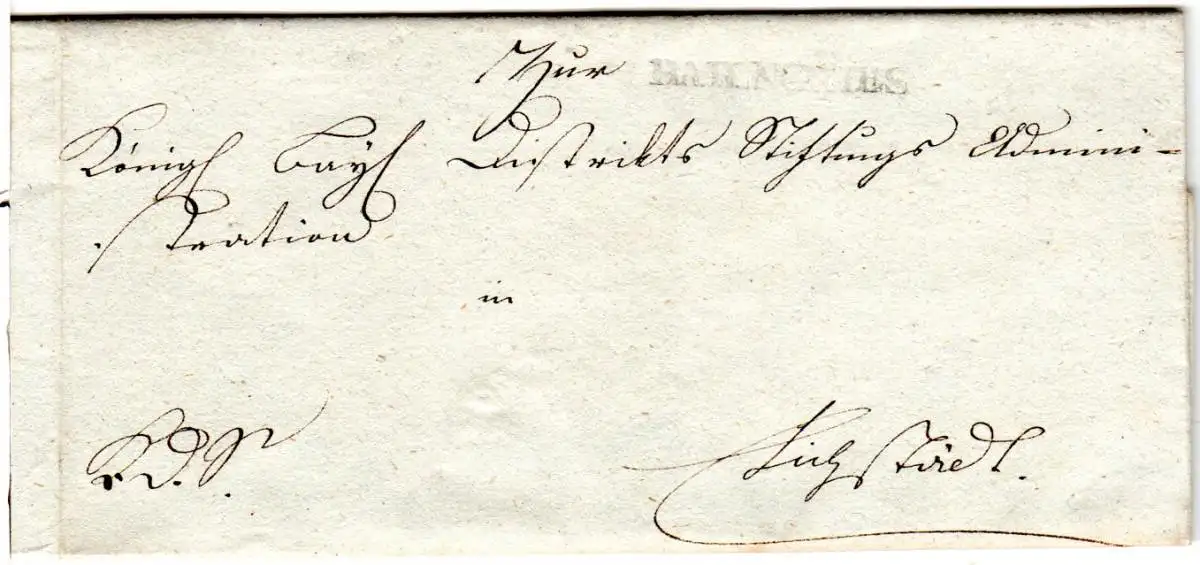 Zur
Königl Bayl Distrikts Stiftungs Admini-
stration
in
Eichstädt.